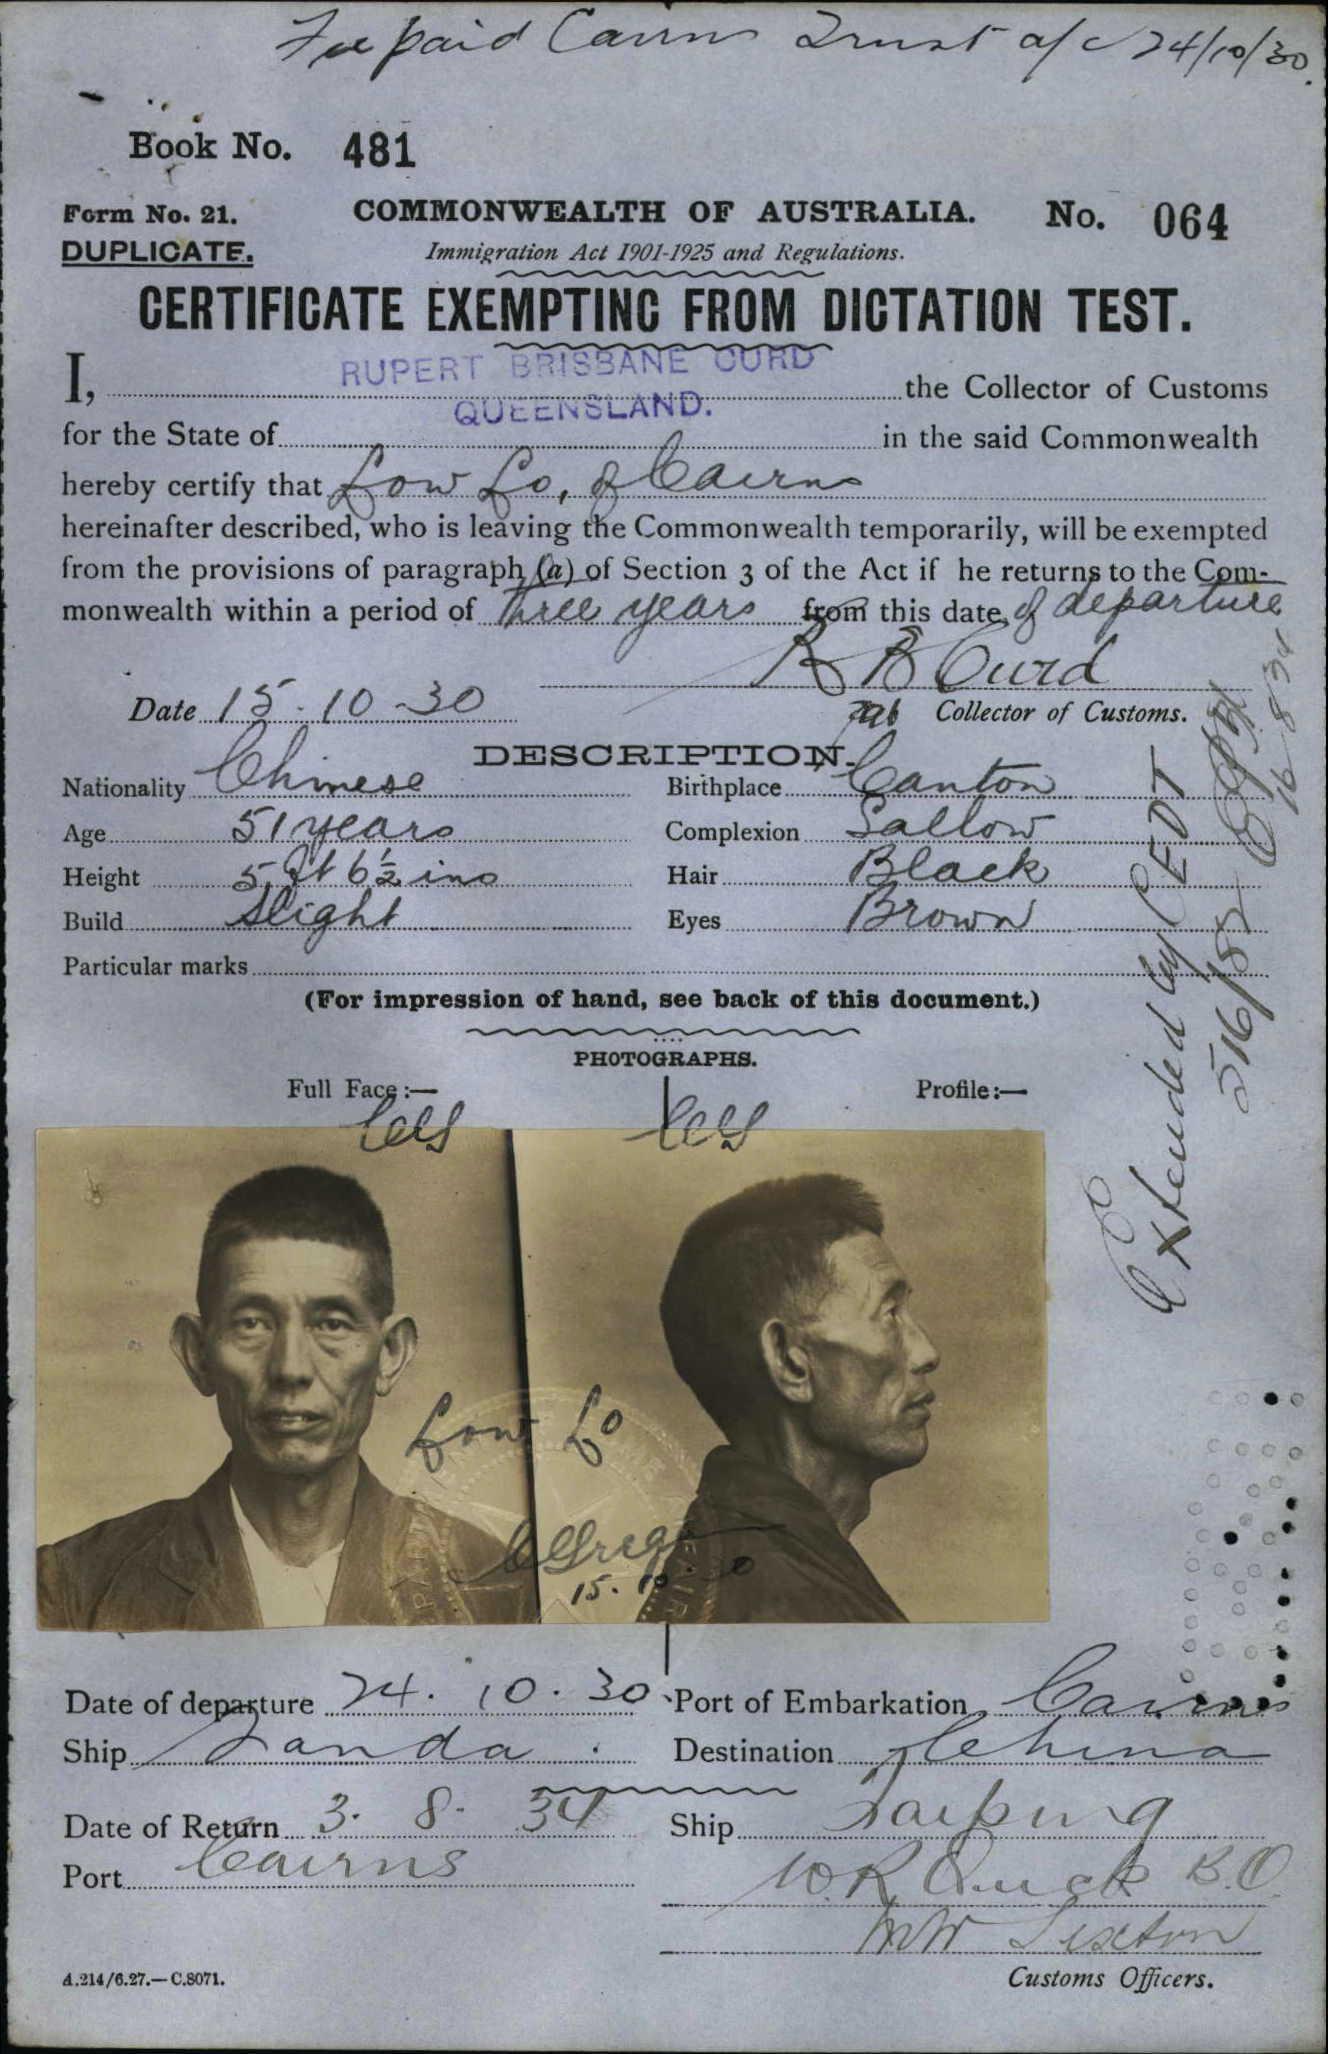 Fee paid Cairns Trust a/c 24/10/30.
Book No. 481
Form No. 21.
COMMONWEALTH OF AUSTRALIA.
No. 064
DUPLICATE.
Immigration Act 1901-1925 and Regulations.
CERTIFICATE EXEMPTING FROM DICTATION TEST.
I, RUPERT BRISBANE CURD the Collector of Customs
for the State of QUEENSLAND. in the said Commonwealth
hereby certify that Low Lo, of Cairns
hereinafter described, who is leaving the Commonwealth temporarily, will be exempted
from the provisions of paragraph (a) of Section 3 of the Act if he returns to the Com-
monwealth within a period of three years from this date of departure
R B Curd
Date 15.10.30
Collector of Customs.
DESCRIPTION.
Nationality Chinese
Birthplace Canton
Age 51 years
Complexion Sallow
Height 5 ft 6½ ins
Hair Black
Build Slight
Eyes Brown
Particular marks
(For impression of hand, see back of this document.)
Extended by CEDT
516/82
16.8.34
PHOTOGRAPHS.
Full Face:—
Profile:—
Low Lo
15.10.30
Date of departure 24.10.30
Port of Embarkation Cairns
Ship Tanda.
Destination China
Date of Return 3.8.34
Ship Taiping
Port Cairns
W.R. B.O.
Sexton
A.214/6.27.—C.8071.
Customs Officers.